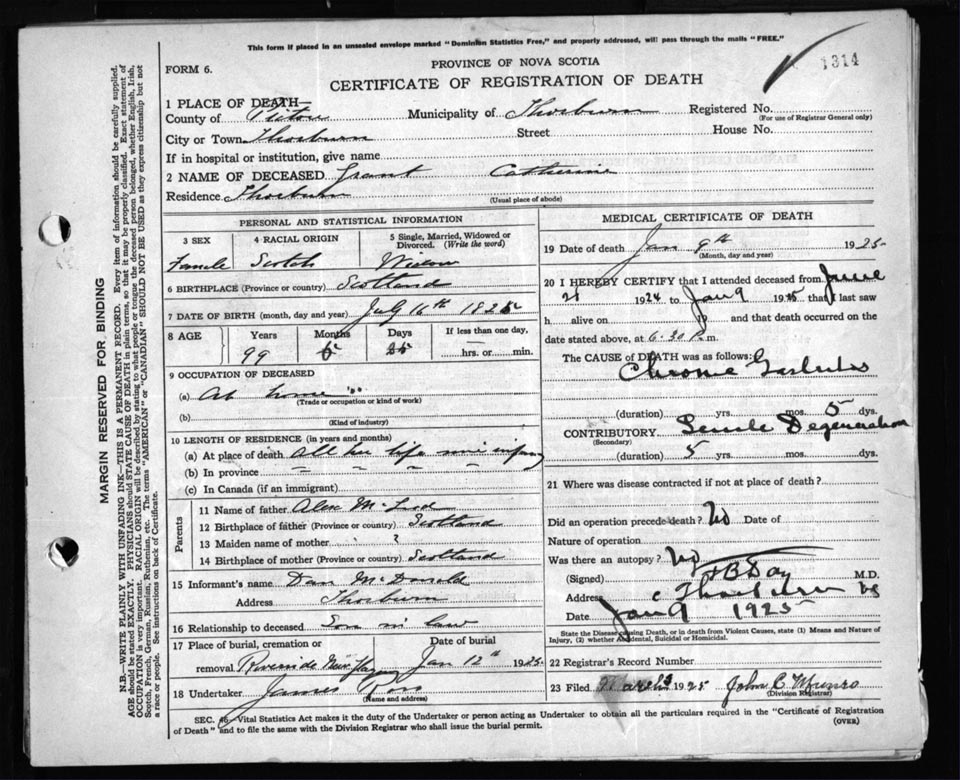 This form if placed in an unsealed envelope marked "Dominion Statistics Free," and properly addressed, will pass through the mails "FREE."
1314
PROVINCE OF NOVA SCOTIA
FORM 6.
CERTIFICATE OF REGISTRATION OF DEATH
1 PLACE OF DEATH—
County of Pictou Municipality of Thorburn Registered No.
(For use of Registrar General only)
City or Town Thorburn Street House No.
If in hospital or institution, give name
2 NAME OF DECEASED Grant Catherine
Residence Thorburn (Usual place of abode)
PERSONAL AND STATISTICAL INFORMATION
3 SEX 4 RACIAL ORIGIN 5 Single, Married, Widowed or Divorced. (Write the word)
Female Scotch Widow
6 BIRTHPLACE (Province or country) Scotland
7 DATE OF BIRTH (month, day and year) July 16th 1825
8 AGE Years Months Days If less than one day,
99 5 25 hrs. or min.
9 OCCUPATION OF DECEASED
(a) At home
(Trade or occupation or kind of work)
(b)
(Kind of industry)
10 LENGTH OF RESIDENCE (in years and months)
(a) At place of death All her life infancy
(b) In province " " " " "
(c) In Canada (if an immigrant)
Parents
11 Name of father Alex McLeod
12 Birthplace of father (Province or country) Scotland
13 Maiden name of mother ?
14 Birthplace of mother (Province or country) Scotland
15 Informant's name Dan McDonald
Address Thorburn
16 Relationship to deceased Son in law
17 Place of burial, cremation or removal Riverside Date of burial Jan 12th 1925
18 Undertaker James Ross
(Name and address)
MEDICAL CERTIFICATE OF DEATH
19 Date of death Jan 9th 1925
(Month, day and year)
20 I HEREBY CERTIFY that I attended deceased from June
21 1924 to Jan 9 1925 that I last saw
h alive on and that death occurred on
date stated above, at 6.30 P.m.
The CAUSE OF DEATH was as follows:
Chronic Gastritis
(duration) yrs. mos. 5 dys.
CONTRIBUTORY Senile Degeneration
(Secondary)
(duration) 5 yrs. mos. dys.
21 Where was disease contracted if not at place of death?
Did an operation precede death? No Date of
Nature of operation
Was there an autopsy? No
(Signed) Day M.D.
Address Thorburn NS
Date Jan 9 1925
State the Disease causing Death, or in death from Violent Causes, state (1) Means and Nature of Injury, (2) whether Accidental, Suicidal or Homicidal.
22 Registrar's Record Number
23 Filed March 3 1925 John C Munro
(Division Registrar)
SEC. 46—Vital Statistics Act makes it the duty of the Undertaker or person acting as Undertaker to obtain all the particulars required in the "Certificate of Registration of Death" and to file the same with the Division Registrar who shall issue the burial permit.
(OVER)
MARGIN RESERVED FOR BINDING
N.B.—WRITE PLAINLY WITH UNFADING INK—THIS IS A PERMANENT RECORD. Every item of information should be carefully supplied.
AGE should be stated EXACTLY. PHYSICIANS should STATE CAUSE OF DEATH in plain terms, so that it may be properly classified. Exact statement of
OCCUPATION is very important. RACIAL ORIGIN will be described by stating to what people or tongue the deceased person belonged, whether English, Irish,
Scotch, French, German, Russian, Ruthenian, etc. The terms "AMERICAN" or "CANADIAN" SHOULD NOT BE USED as they express citizenship but not
a race or people. See instructions on back of Certificate.